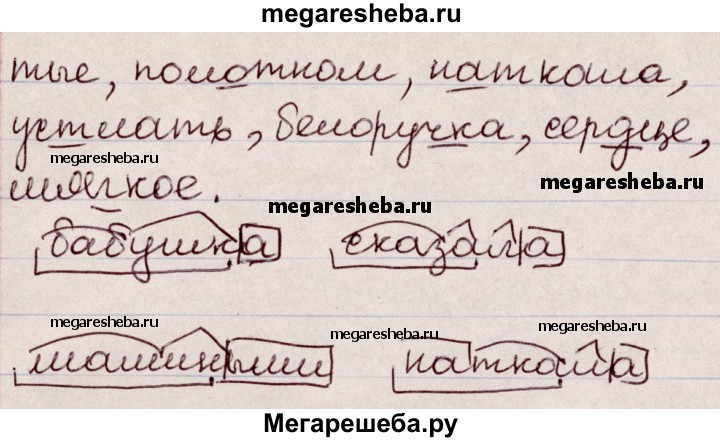 megaresheba.ru
тые, полотном, наткала,
megaresheba.ru
устлать, белоручка, сердце,
megaresheba.ru
мягкое.
megaresheba.ru
megaresheba.ru
бабушка сказала
megaresheba.ru
megaresheba.ru
megaresheba.ru
мамиными наткала
Мегарешеба.ру